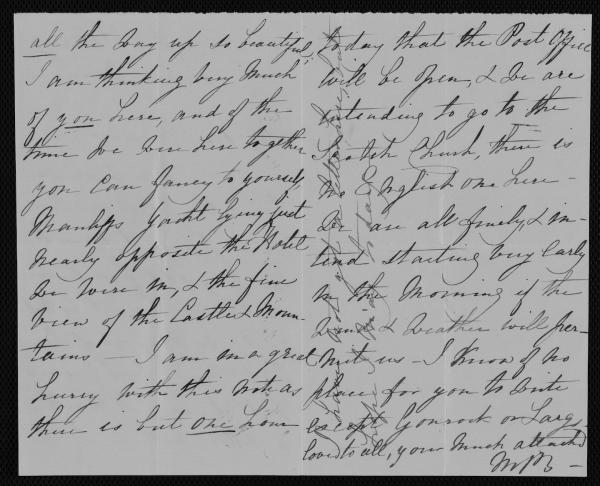 all the way up so beautiful,
I am thinking very much
of you here, and of the
time we were here together
you can fancy to yourself,
yacht lying just
nearly opposite the Hotel
we were in, & the fine
view of the Castle & Moun-
tains — I am in a great
hurry with this note as
there is but one hour
today that the Post Office
will be open, & we are
intending to go to the
Scotch Church, there is
no English one here —
We are all finely, & in-
tend starting very early
in the morning if the
Wind & Weather will per-
mit us — I know of no
place for you to write
except Gourock or Largs
love to all, your much attached